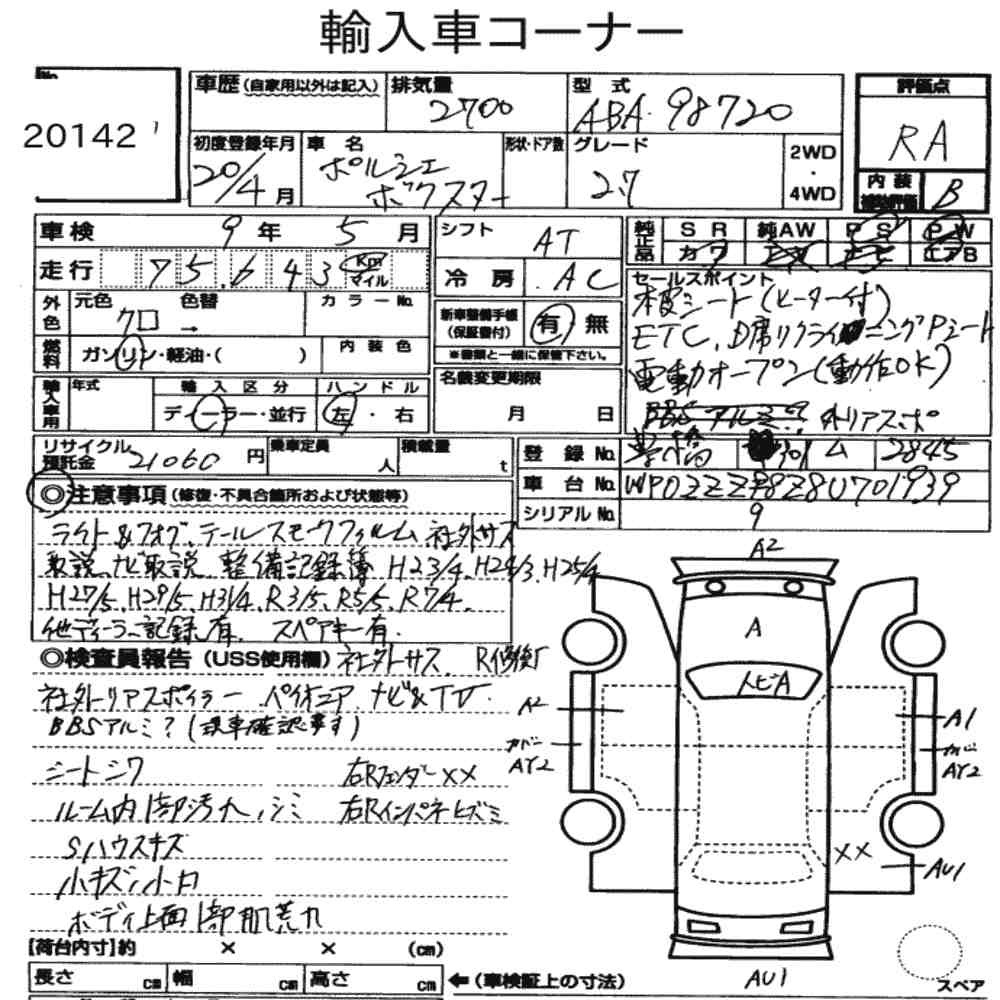 輸入車コーナー
No.
20142
車歴(自家用以外は記入)
排気量
2700
型式
ABA-98720
評価点
RA
初度登録年月
20/4月
車名
ポルシェ
ボクスター
形状・ドア数
グレード
2.7
2WD
・
4WD
内装
補助評価
B
車検 9年 5月
走行 75,643 Km マイル
外色
元色 クロ
色替 →
カラーNo.
燃料
ガソリン・軽油・( )
内装色
輸入車用
年式
輸入区分
ディーラー・並行
ハンドル
左・右
シフト AT
冷房 AC
新車整備手帳
(保証書付)
有・無
※書類と一緒に保管下さい。
名義変更期限
月 日
純正品
SR 純AW PS PW
カワ ナビ エアB
セールスポイント
本皮シート(ヒーター付)
ETC、D席リクライニングPシート
電動オープン(動作OK)
BBSアルミ? 外リアスポ
リサイクル
預託金 21060円
乗車定員
人
積載量
t
登録No. 301 ム 2845
車台No. WP0ZZZ98Z8U701939
シリアルNo. 9
◎注意事項(修復・不具合箇所および状態等)
ライト&フォグ、テールスモークフィルム 社外サス
取説、ナビ取説、整備記録簿 H23/4、H24/3、H25/4
H27/5、H29/5、H31/4、R3/5、R5/5、R7/4、
他ディーラー記録有、スペアキー有、
◎検査員報告(USS使用欄) 社外サス R修復
社外リアスポイラー パイオニアナビ&TV
BBSアルミ?(現車確認要す)
シートシワ
右RフェンダーXX
ルーム内1部汚れ、シミ
右Rインパネヒズミ
Sハウスキズ
小キズ、小凹
ボディ上面1部肌荒れ
A2
A
トビA
A2
カバー
AY2
A1
カバー
AY2
XX
AU1
AU1
スペア
【荷台内寸】約 × × (cm)
長さ cm 幅 cm 高さ cm
←(車検証上の寸法)